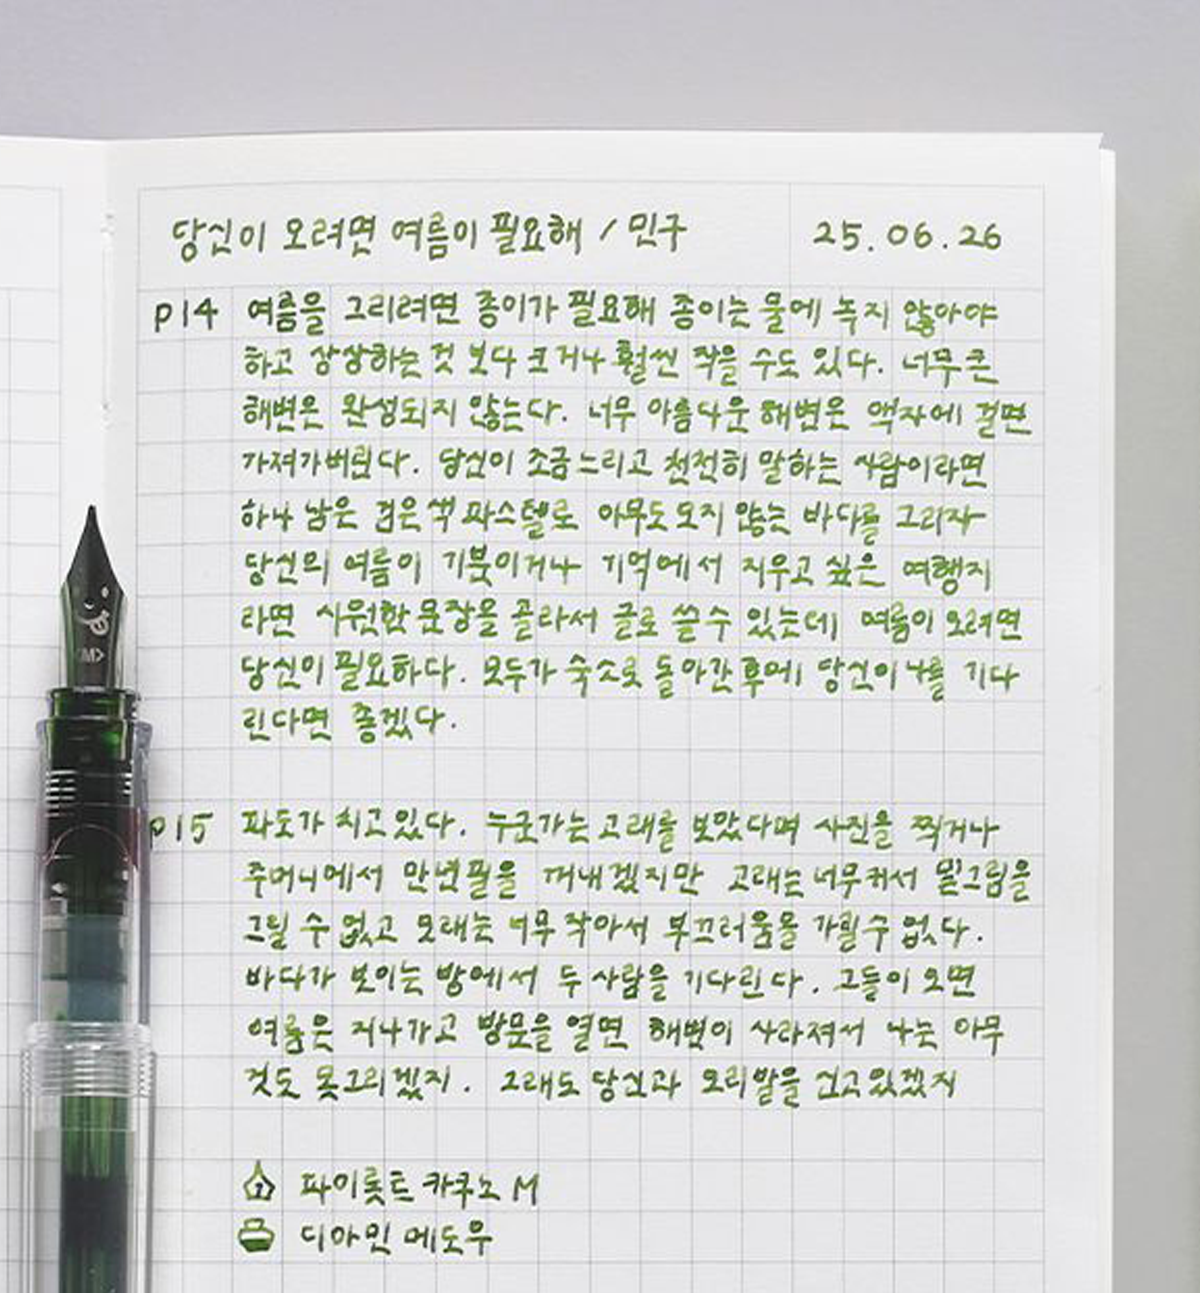 당신이 오려면 여름이 필요해 / 민구 25.06.26
p14 여름을 그리려면 종이가 필요해 종이는 물에 녹지 않아야
하고 상상하는 것 보다 크거나 훨씬 작을 수도 있다. 너무 큰
해변은 완성되지 않는다. 너무 아름다운 해변은 액자에 걸면
가져가버린다. 당신이 조금 느리고 천천히 말하는 사람이라면
하나 남은 검은색 파스텔로 아무도 오지 않는 바다를 그리자
당신의 여름이 기분이거나 기억에서 지우고 싶은 여행지
라면 시원한 문장을 골라서 글로 쓸 수 있는데 여름이 오려면
당신이 필요하다. 모두가 숙소로 돌아간 후에 당신이 나를 기다
린다면 좋겠다.
p15 파도가 치고 있다. 누군가는 고래를 보았다며 사진을 찍거나
주머니에서 만년필을 꺼내겠지만 고래는 너무 커서 밑그림을
그릴 수 없고 모래는 너무 작아서 부끄러움을 가릴 수 없다.
바다가 보이는 방에서 두 사람을 기다린다. 그들이 오면
여름은 지나가고 방문을 열면 해변이 사라져서 나는 아무
것도 못 그리겠지. 그래도 당신과 오리발을 신고 있겠지
파이롯트 카쿠노 M
디아민 메도우
<M>